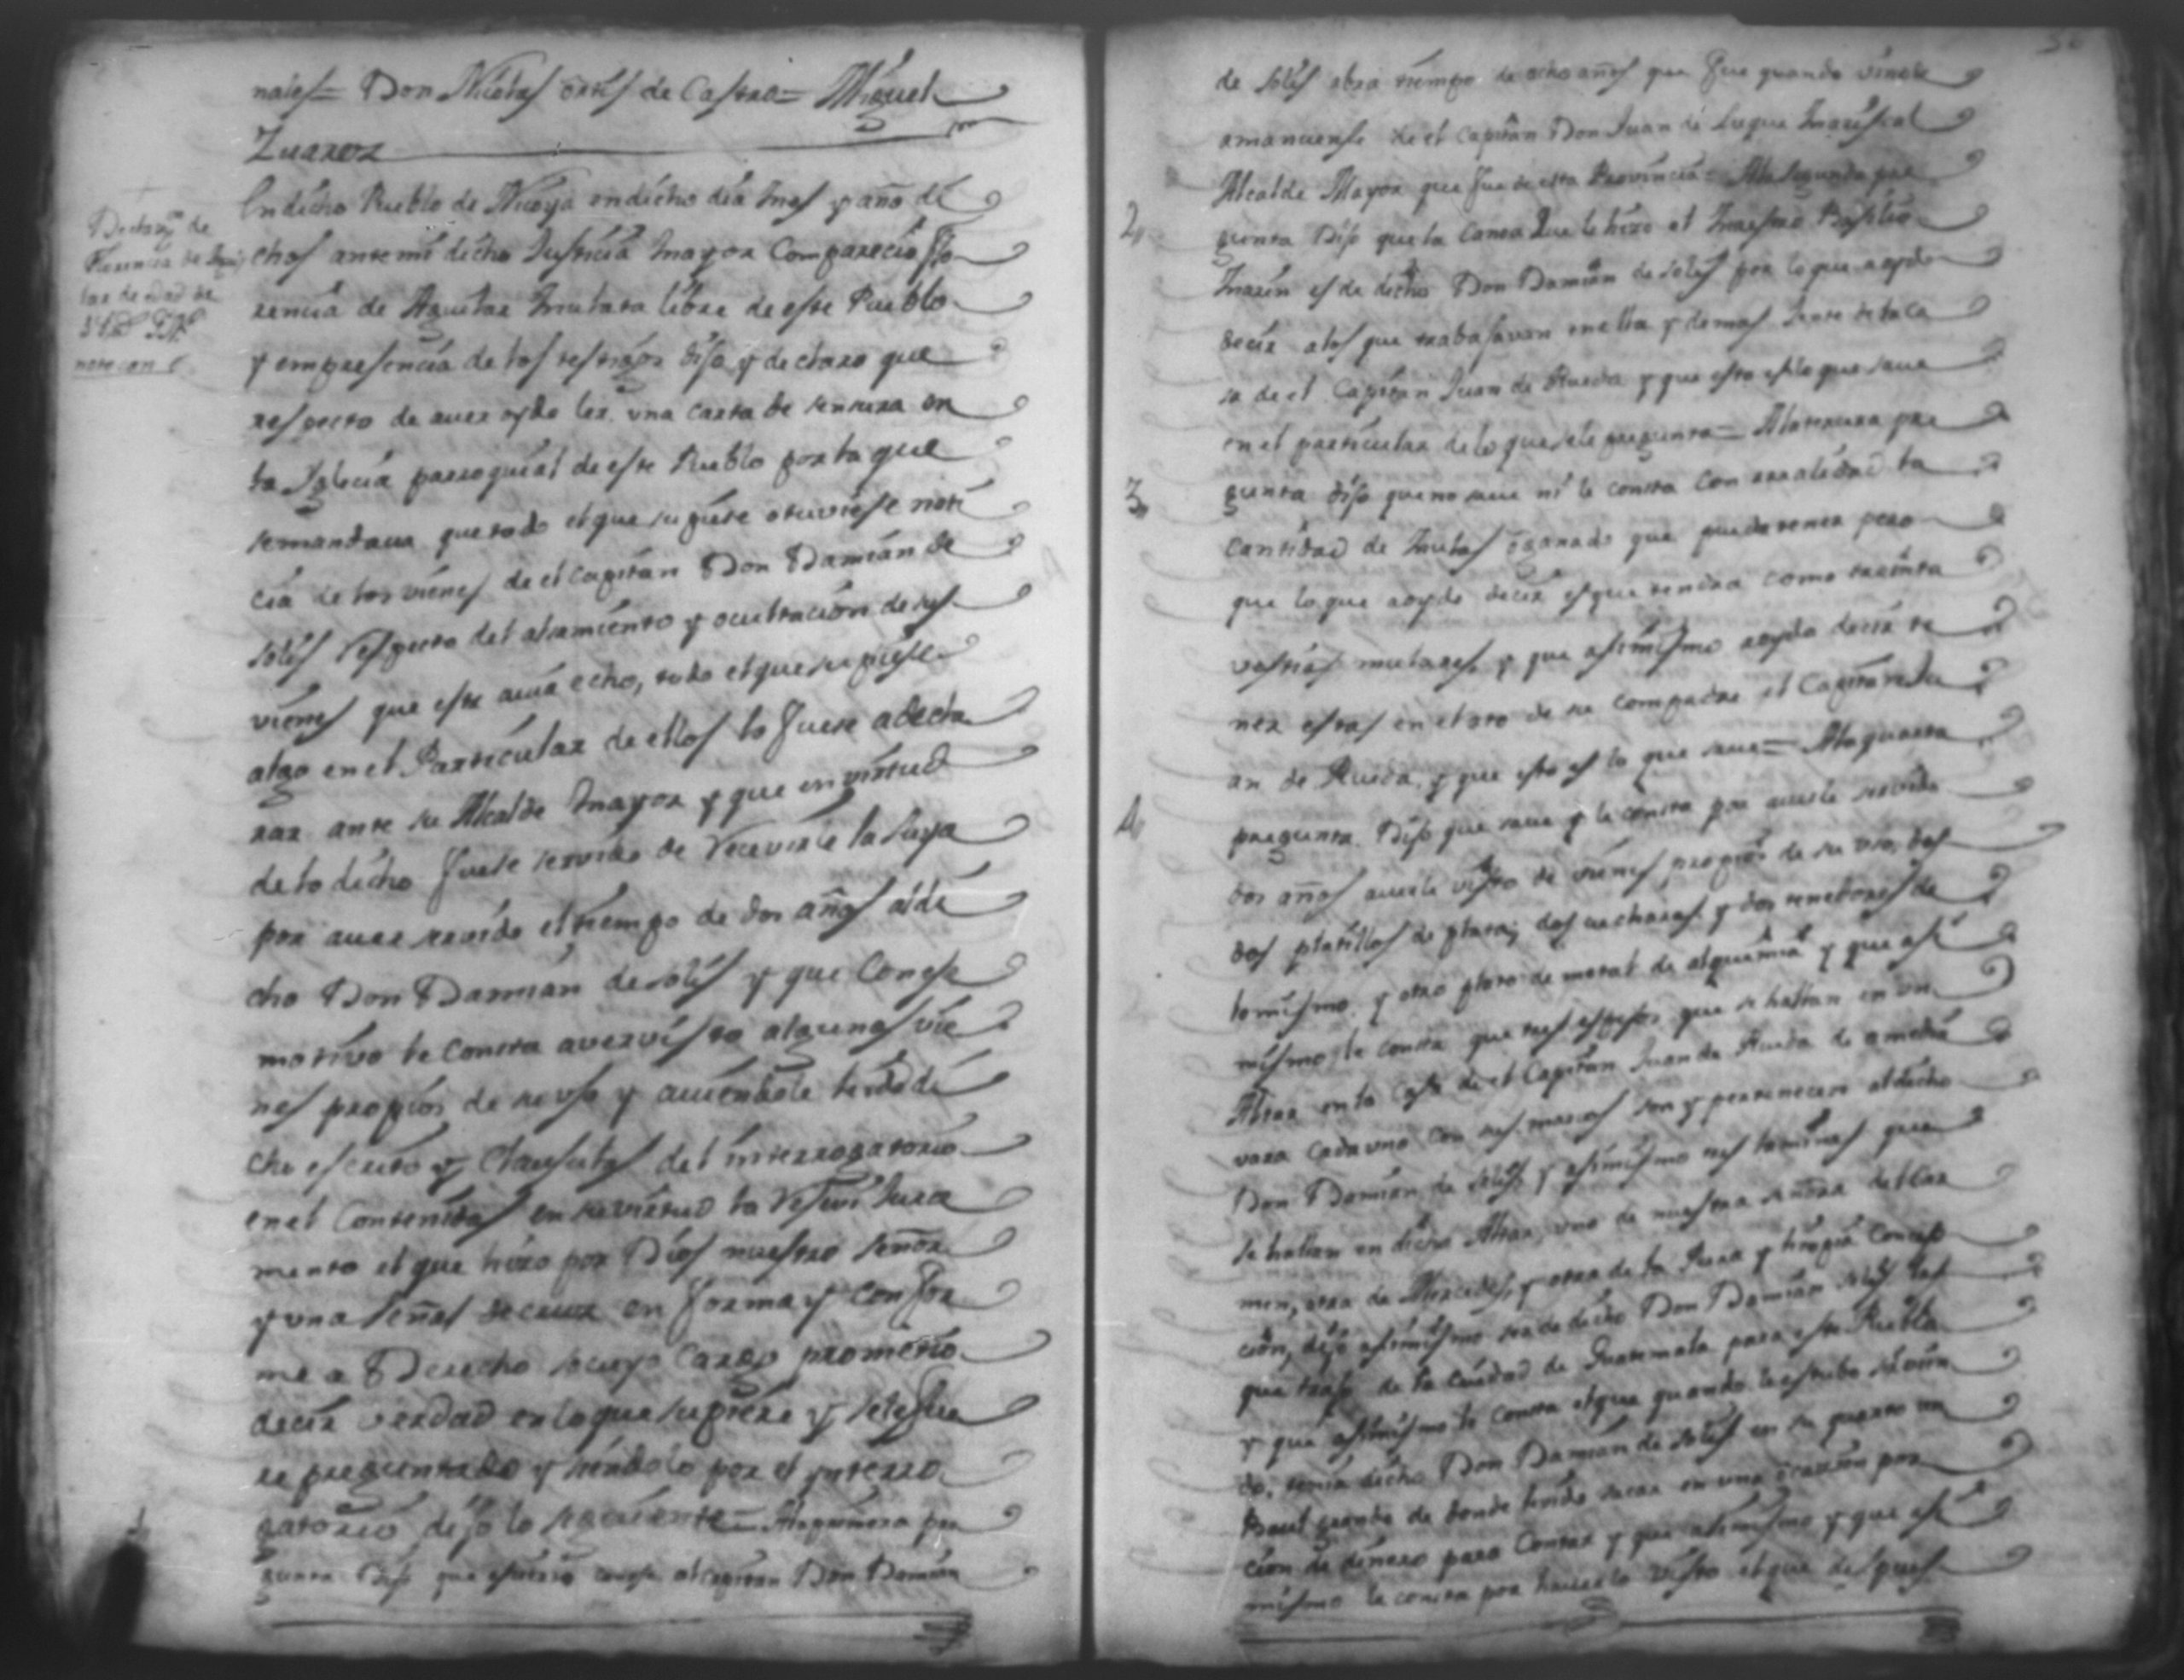 nales = Don Nicolas ortis de Castro = Miguel
Zuarez
Declaraon de
Florencia de Agui
lar de edad de
En dicho Pueblo de Nicoya en dicho dia mes y año di
chos ante mi dicho Justicia mayor Comparecio flo
rencia de Aguilar mulata libre de este Pueblo
y empresencia de los testigos dijo y declaro que
respecto de auer oydo leer una carta de sensura en
la Iglecia parroquial de este Pueblo por la que
semandaua que todo el que supiese o tuviese noti
cia de los vienes de el Capitan Don Damian de
solis respecto del alsamiento y ocultacion de sus
vienes que este auia echo, todo el que supiese
algo en el Particular de ellos lo fuese a decla
rar ante su Alcalde mayor y que en virtud
de lo dicho fuese servido de Recevirle la suya
por auer servido el tiempo de dos años al di
cho Don Damian de solis y que Con este
motivo le Consta aver visto algunos vie
nes propios de su vso y auiendole leido di
cho escrito y Clausulas del interrogatorio
en el Contenidas en su virtud la Resevi Jura
mento el que hizo por Dios nuestro señor
y una señal de cruz en forma y confor
me a Derecho so cuyo Cargo prometio
decir verdad en lo que supiere y se le fue
re preguntado y siendolo por el ynterro
gatorio dijo lo siguiente = Ala primera pre
gunta Dijo que conose al Capitan Don Damian
de solis abra tiempo de ocho años que fue quando vino de
amanuense de el Capitan Don Juan de Luque Mariscal
Alcalde Mayor que fue de esta Provincia = Ala segunda pre
2
gunta Dijo que la Canoa que le hizo el Maestro Basilio
Marin es de dicho Don Damian de solis por lo que a oydo
decir a los que trabajavan en ella y demas Jente de la ca
sa de el Capitan Juan de Rueda y que esto es lo que saue
en el particular de lo que se le pregunta = Ala tersera pre
3
gunta dijo que no saue ni le consta con rrealidad la
cantidad de mulas o ganado que pueda tener pero
que lo que a oydo decir es que tendra como treinta
vestias mulares y que asimismo a oydo decir te
ner estas en el ato de su compadre el Capitan Ju
an de Rueda, y que esto es lo que saue = Ala quarta
4
pregunta Dijo que saue y le consta por auerle servido
dos años auerle visto de vienes propios de su vso, dos
dos platillos de plata, dos cucharas y dos tenedores de
lo mismo y otro plato de metal de alquimia y que asi
mismo le consta que tres espejos que se hallan en un
Altar en la casa de el Capitan Juan de Rueda de a media
vara cada uno con sus marcos son y pertenecen al dicho
Don Damian de solis y asimismo tres laminas que
se hallan en dicho Altar, una de nuestra señora del Car
men, otra de Mercedes, y otra de la Pura y limpia Concep
cion, dijo asimismo ser de dicho Don Damian solis las
que trajo de la ciudad de Guatemala para este Pueblo
y que asimismo le consta el que quando le estubo sirvien
do, tenia dicho Don Damian de solis en su quarto un
Baul grande de donde le vido sacar en una ocacion por
cion de dinero para Contar y que asimismo y que asi
mismo le consta por hauerlo visto el que despues